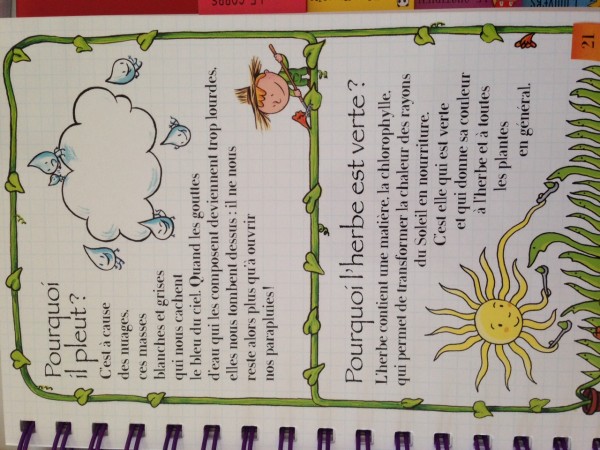 Pourquoi
il pleut ?
C'est à cause
des nuages,
ces masses
blanches et grises
qui nous cachent
le bleu du ciel. Quand les gouttes
d'eau qui les composent deviennent trop lourdes,
elles nous tombent dessus : il ne nous
reste alors plus qu'à ouvrir
nos parapluies !
Pourquoi l'herbe est verte ?
L'herbe contient une matière, la chlorophylle,
qui permet de transformer la chaleur des rayons
du Soleil en nourriture.
C'est elle qui est verte
et qui donne sa couleur
à l'herbe et à toutes
les plantes
en général.
21
LE CORPS